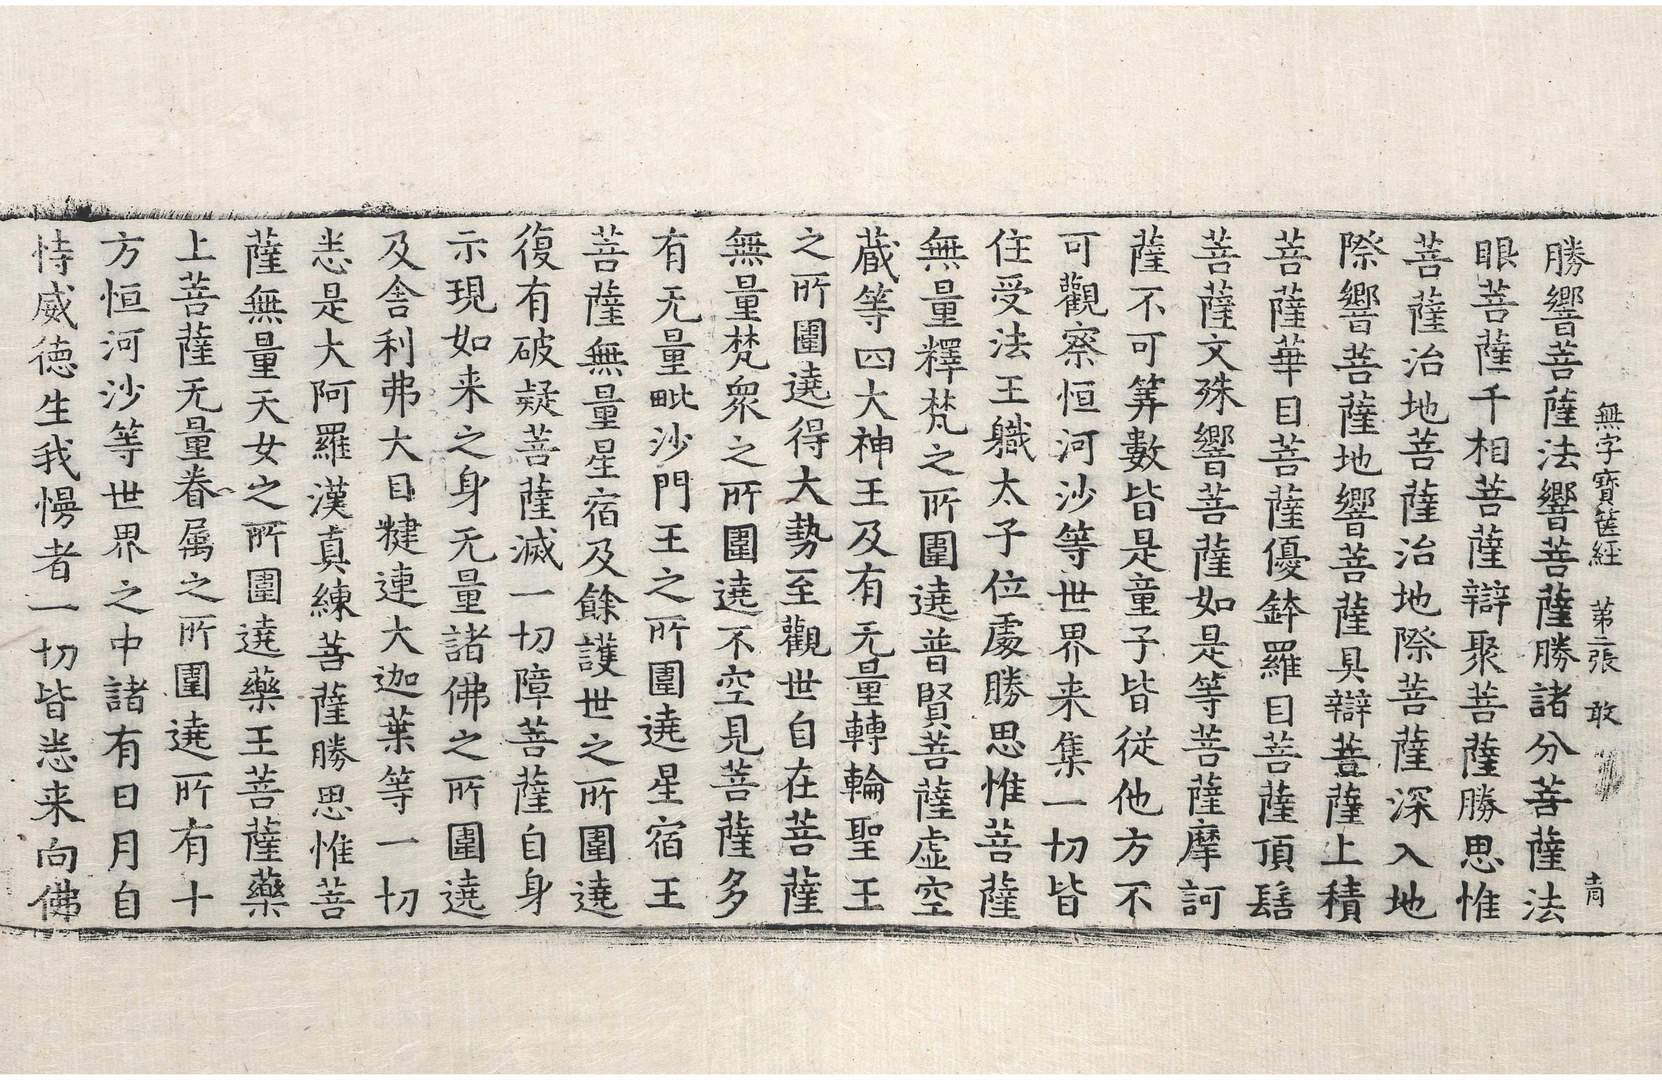 無字寶篋経 第二張 敢
勝響菩薩法響菩薩勝諸分菩薩法
眼菩薩千相菩薩辯聚菩薩勝思惟
菩薩治地菩薩治地際菩薩深入地
際響菩薩地響菩薩具辯菩薩上積
菩薩華目菩薩優鉢羅目菩薩頂髻
菩薩文殊響菩薩如是等菩薩摩訶
薩不可筭數皆是童子皆從他方不
可觀察恒河沙等世界来集一切皆
住受法王軄太子位處勝思惟菩薩
無量釋梵之所圍遶普賢菩薩虛空
蔵等四大神王及有无量轉輪聖王
之所圍遶得大勢至觀世自在菩薩
無量梵衆之所圍遶不空見菩薩多
有无量毗沙門王之所圍遶星宿王
菩薩無量星宿及餘護世之所圍遶
復有破疑菩薩滅一切障菩薩自身
示現如来之身无量諸佛之所圍遶
及舍利弗大目揵連大迦葉等一切
悉是大阿羅漢真練菩薩勝思惟菩
薩無量天女之所圍遶藥王菩薩藥
上菩薩无量眷属之所圍遶所有十
方恒河沙等世界之中諸有日月自
恃威德生我慢者一切皆悉来向佛